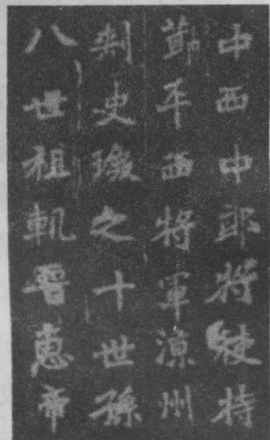 中西中郎将使持
節平西将軍涼州
刺史瓊之十世孫
八世祖軌晉惠帝